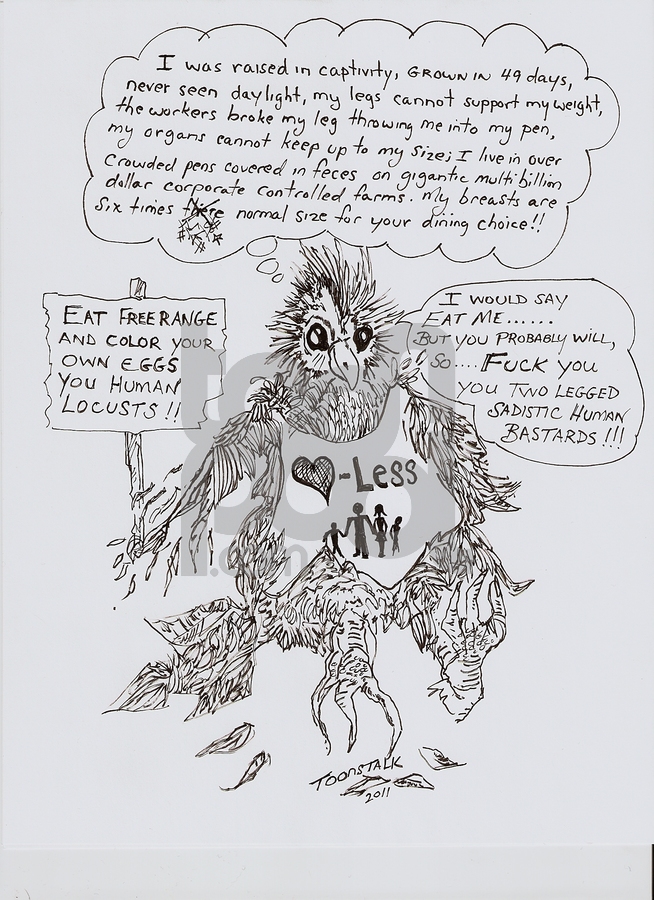 I was raised in captivity, GROWN IN 49 days,
never seen daylight, my legs cannot support my weight,
the workers broke my leg throwing me into my pen,
my organs cannot keep up to my size; I live in over
crowded pens covered in feces on gigantic multi billion
dollar corporate controlled farms. My breasts are
six times there normal size for your dining choice!!
EAT FREE RANGE
AND COLOR YOUR
OWN EGGS
YOU HUMAN
LOCUSTS!!
I WOULD SAY
EAT ME......
BUT YOU PROBABLY WILL,
SO.... FUCK YOU
YOU TWO LEGGED
SADISTIC HUMAN
BASTARDS!!!
-Less
TOONSTALK
2011